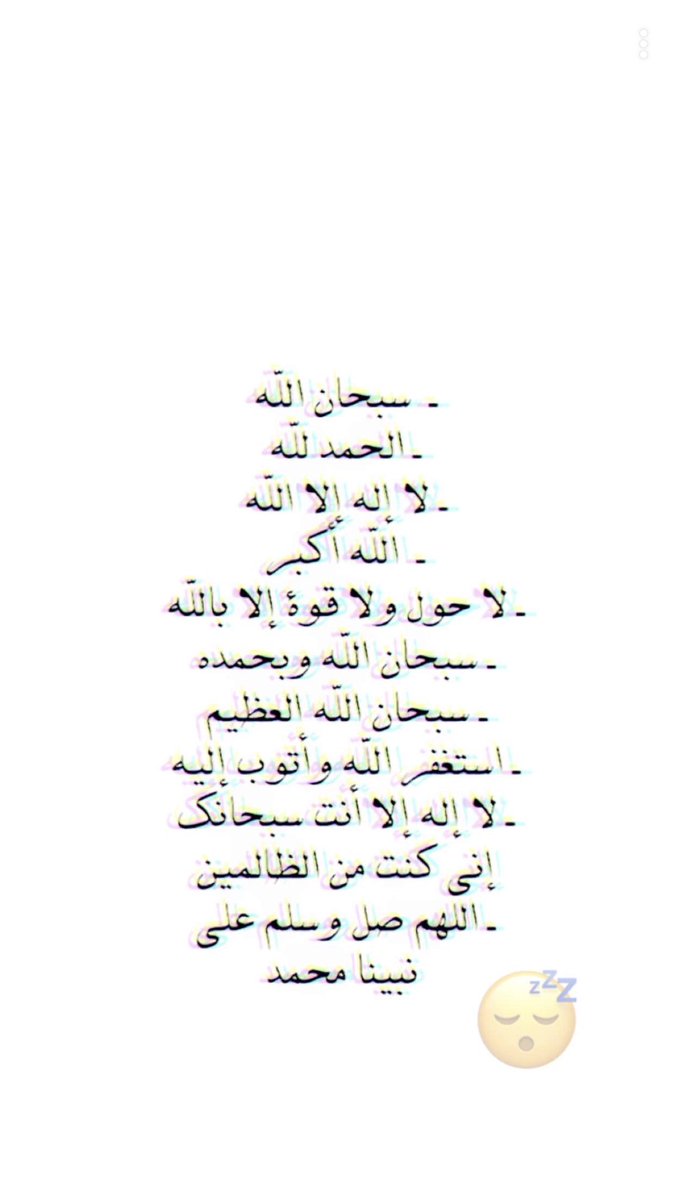 ـ سبحان اللّه
ـ الحمد للّه
ـ لا إله إلا اللّه
ـ اللّه أكبر
ـ لا حول ولا قوة إلا باللّه
ـ سبحان اللّه وبحمده
ـ سبحان اللّه العظيم
ـ استغفر اللّه وأتوب إليه
ـ لا إله إلا أنت سبحانك
إني كنت من الظالمين
ـ اللهم صل وسلم على
نبينا محمد
zzz